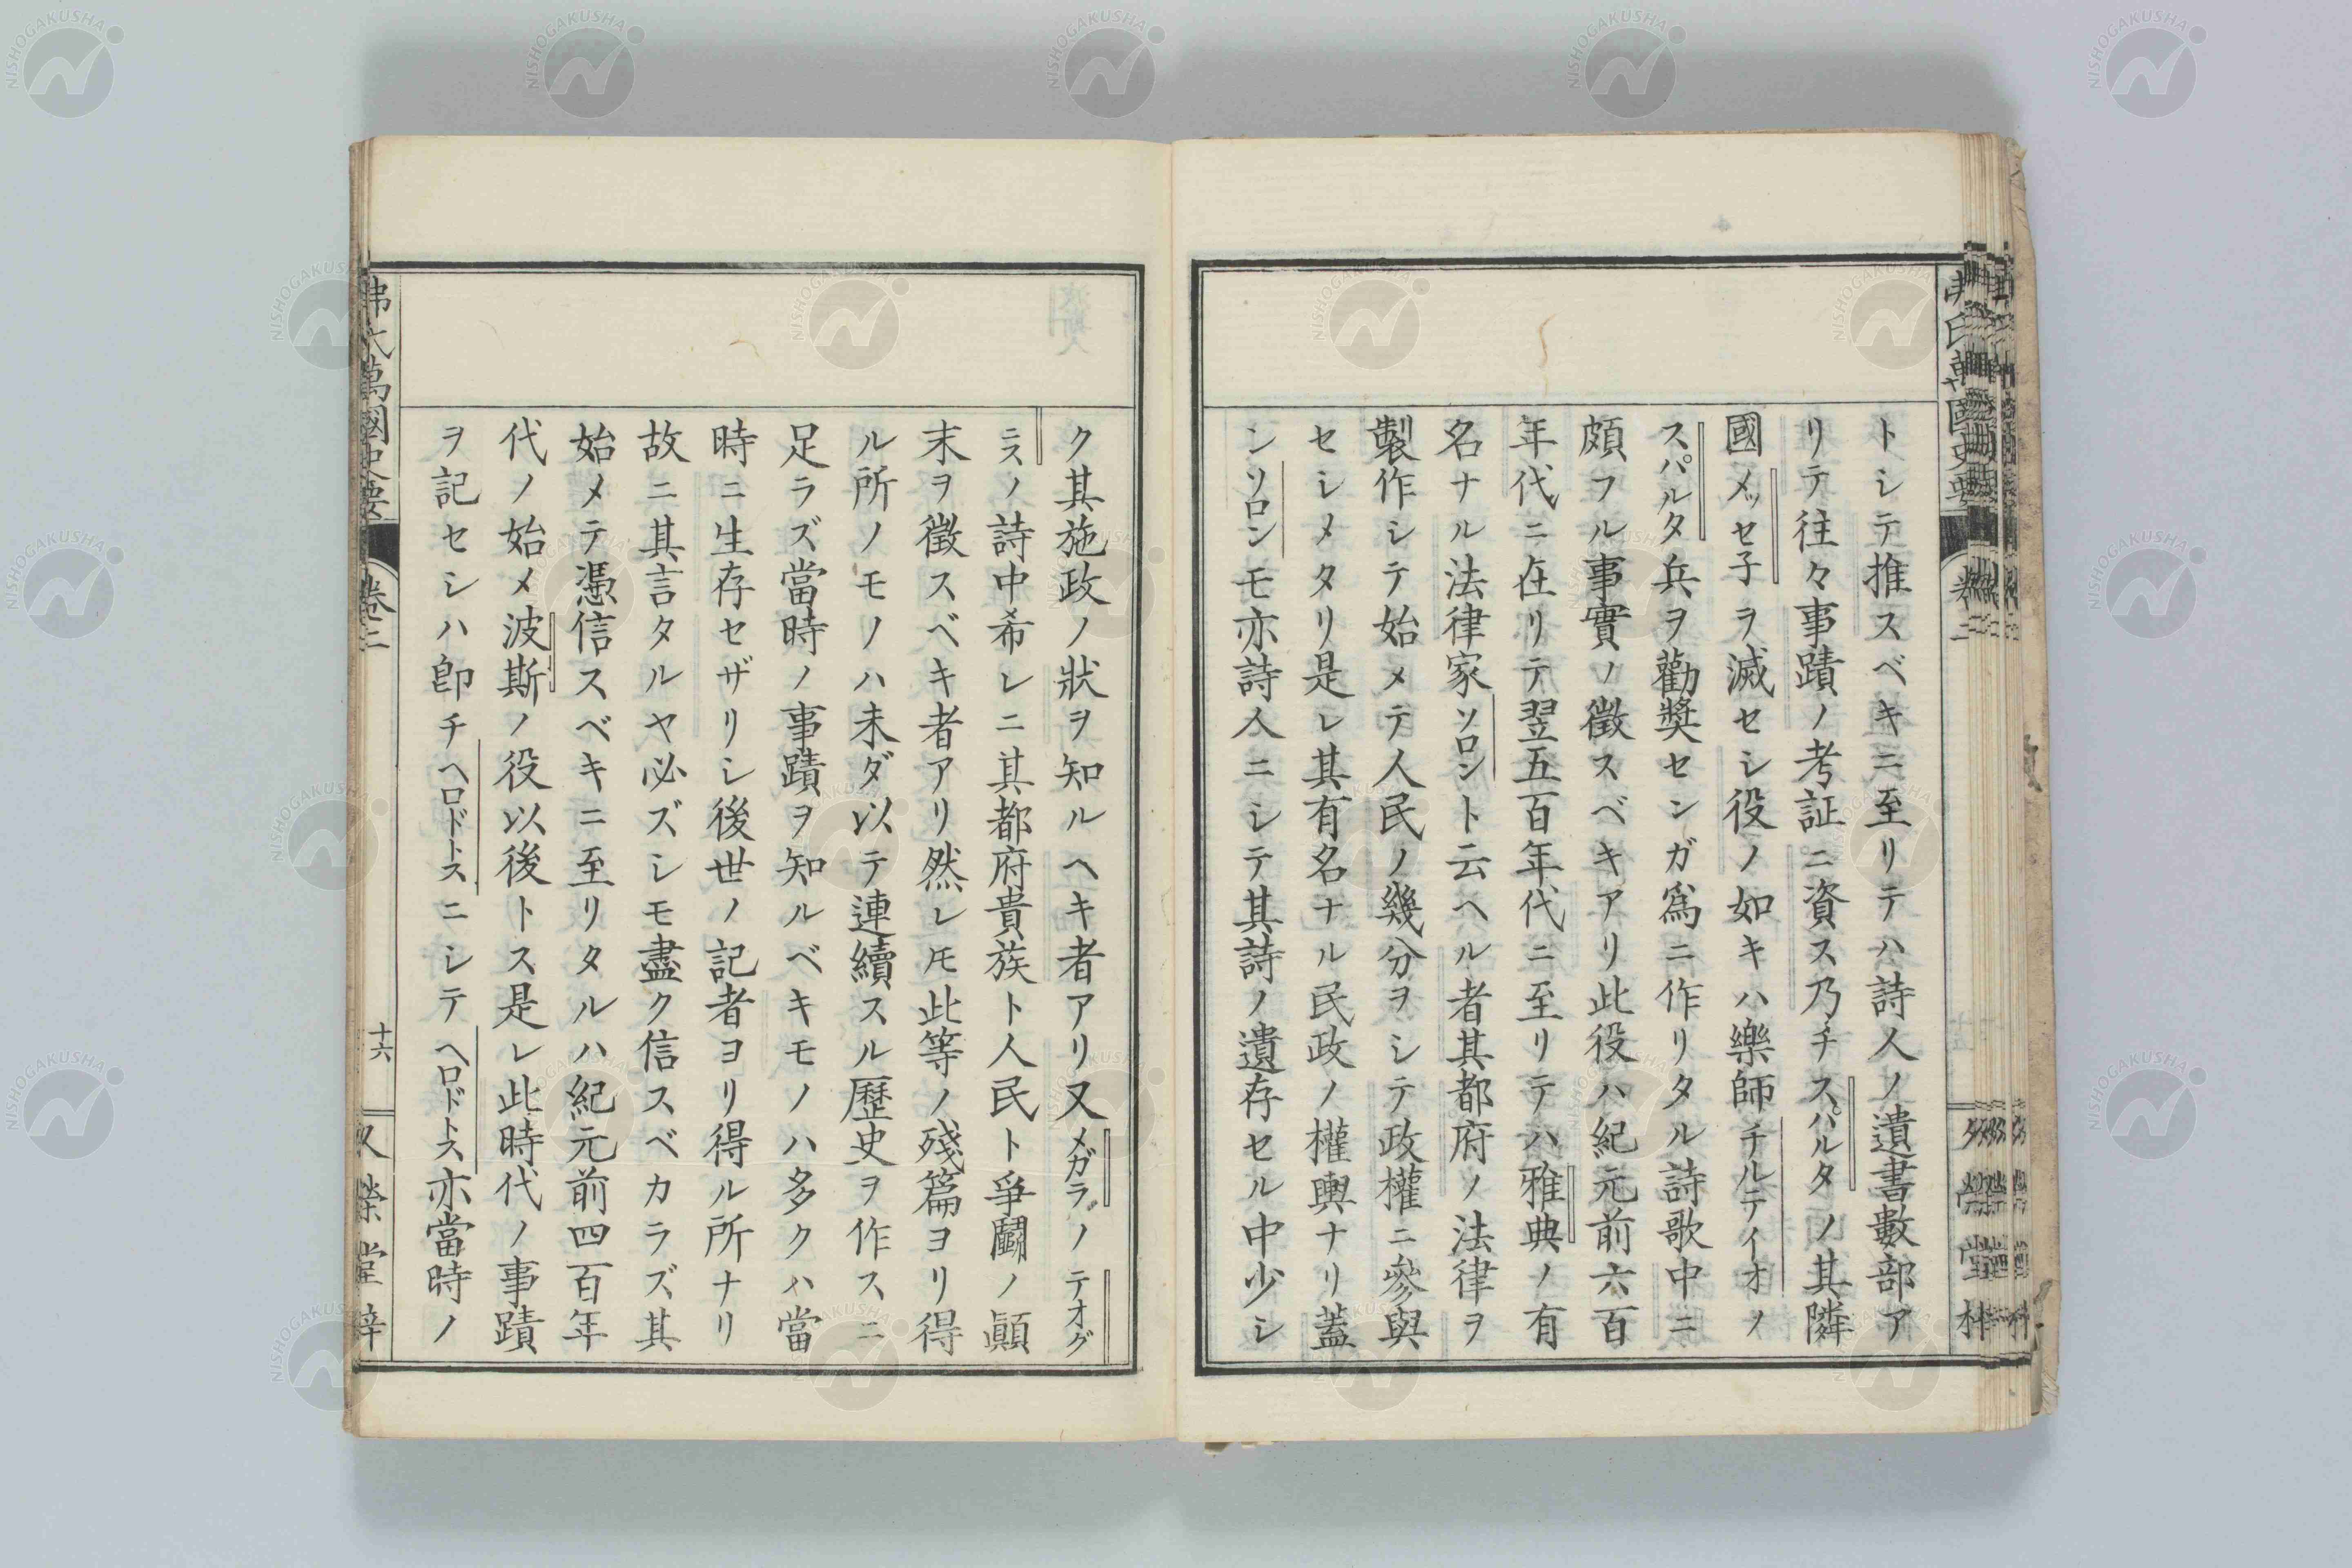 トシテ推スベキニ至リテハ詩人ノ遺書數部ア
リテ往々事蹟ノ考証ニ資ス乃チスパルタノ其隣
國メッセ子ヲ滅セシ役ノ如キハ樂師チルテイオノ
スパルタ兵ヲ勸奬センガ爲ニ作リタル詩歌中ニ
頗フル事實ノ徵スベキアリ此役ハ紀元前六百
年代ニ在リテ翌五百年代ニ至リテハ雅典ノ有
名ナル法律家ソロント云ヘル者其都府ノ法律ヲ
製作シテ始メテ人民ノ幾分ヲシテ政權ニ參與
セシメタリ是レ其有名ナル民政ノ權輿ナリ蓋
ンソロンモ亦詩人ニシテ其詩ノ遺存セル中少シ
ク其施政ノ狀ヲ知ルヘキ者アリ又メガラノテオグ
ニスノ詩中希レニ其都府貴族ト人民ト爭鬭ノ顚
末ヲ徵スベキ者アリ然レ𪜈此等ノ殘篇ヨリ得
ル所ノモノハ未ダ以テ連續スル歷史ヲ作スニ
足ラズ當時ノ事蹟ヲ知ルベキモノハ多クハ當
時ニ生存セザリシ後世ノ記者ヨリ得ル所ナリ
故ニ其言タルヤ必ズシモ盡ク信スベカラズ其
始メテ憑信スベキニ至リタルハ紀元前四百年
代ノ始メ波斯ノ役以後トス是レ此時代ノ事蹟
ヲ記セシハ卽チヘロドトスニシテヘロドトス亦當時ノ
弗氏萬國史要
卷二
十六
又榮堂梓
NISHOGAKUSHA